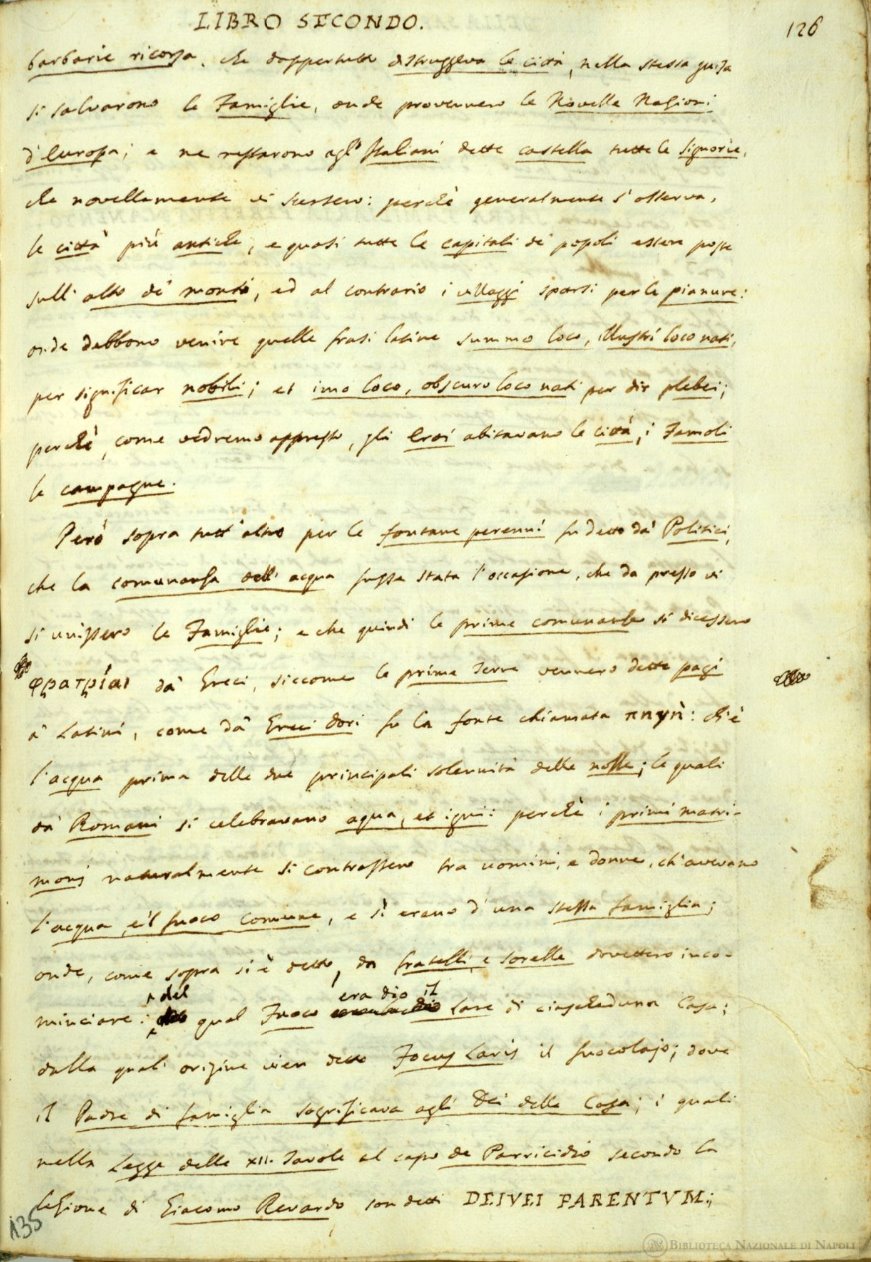 LIBRO SECONDO.
126
barbarie ricorsa, che dappertutto distruggeva le città, nella stessa guisa
si salvarono le Famiglie, onde provennero le Novelle Nazioni
d'Europa; e ne restarono agl' Italiani dette castella tutte le Signorie,
che novellamente vi sursero: perchè generalmente s'osserva,
le città più antiche, e quasi tutte le capitali de' popoli essere poste
sull' alto de' monti, ed al contrario i villaggi sparsi per le pianure:
onde debbono venire quelle frasi latine summo loco, illustri loco nati,
per significar nobili; et imo loco, obscuro loco nati per dir plebei;
perchè, come vedremo appresso, gli Eroi abitavano le città, i Famoli
le campagne.
Però sopra tutt' altro per le fontane perenni fu detto da' Politici,
che la comunanza dell' acqua fusse stata l'occasione, che da presso vi
si unissero le Famiglie; e che quindi le prime comunanze si dicessero
φρατρίαι da' Greci, siccome le prime Terre vennero dette pagi
a' Latini, come da' Greci Dori fu la fonte chiamata πηγὴ: ch'è
l'acqua prima delle due principali solennità delle nozze; le quali
da' Romani si celebravano aqua, et igni: perchè i primi matri-
monj naturalmente si contrassero tra uomini, e donne, ch'avevano
l'acqua, e'l fuoco comune, e sì erano d'una stessa famiglia;
onde, come sopra si è detto, da fratelli, e sorelle dovettero inco-
minciare: del qual Fuoco era dio il Lare di ciascheduna Casa;
dalla quali origine vien detto Focus Laris il fuocolajo; dove
il Padre di famiglia sagrificava agli Dei della Casa; i quali
nella Legge delle XII. Tavole al capo de Parricidio secondo la
lezione di Giacomo Revardo son detti DEIVEI PARENTVM;
135
BIBLIOTECA NAZIONALE DI NAPOLI